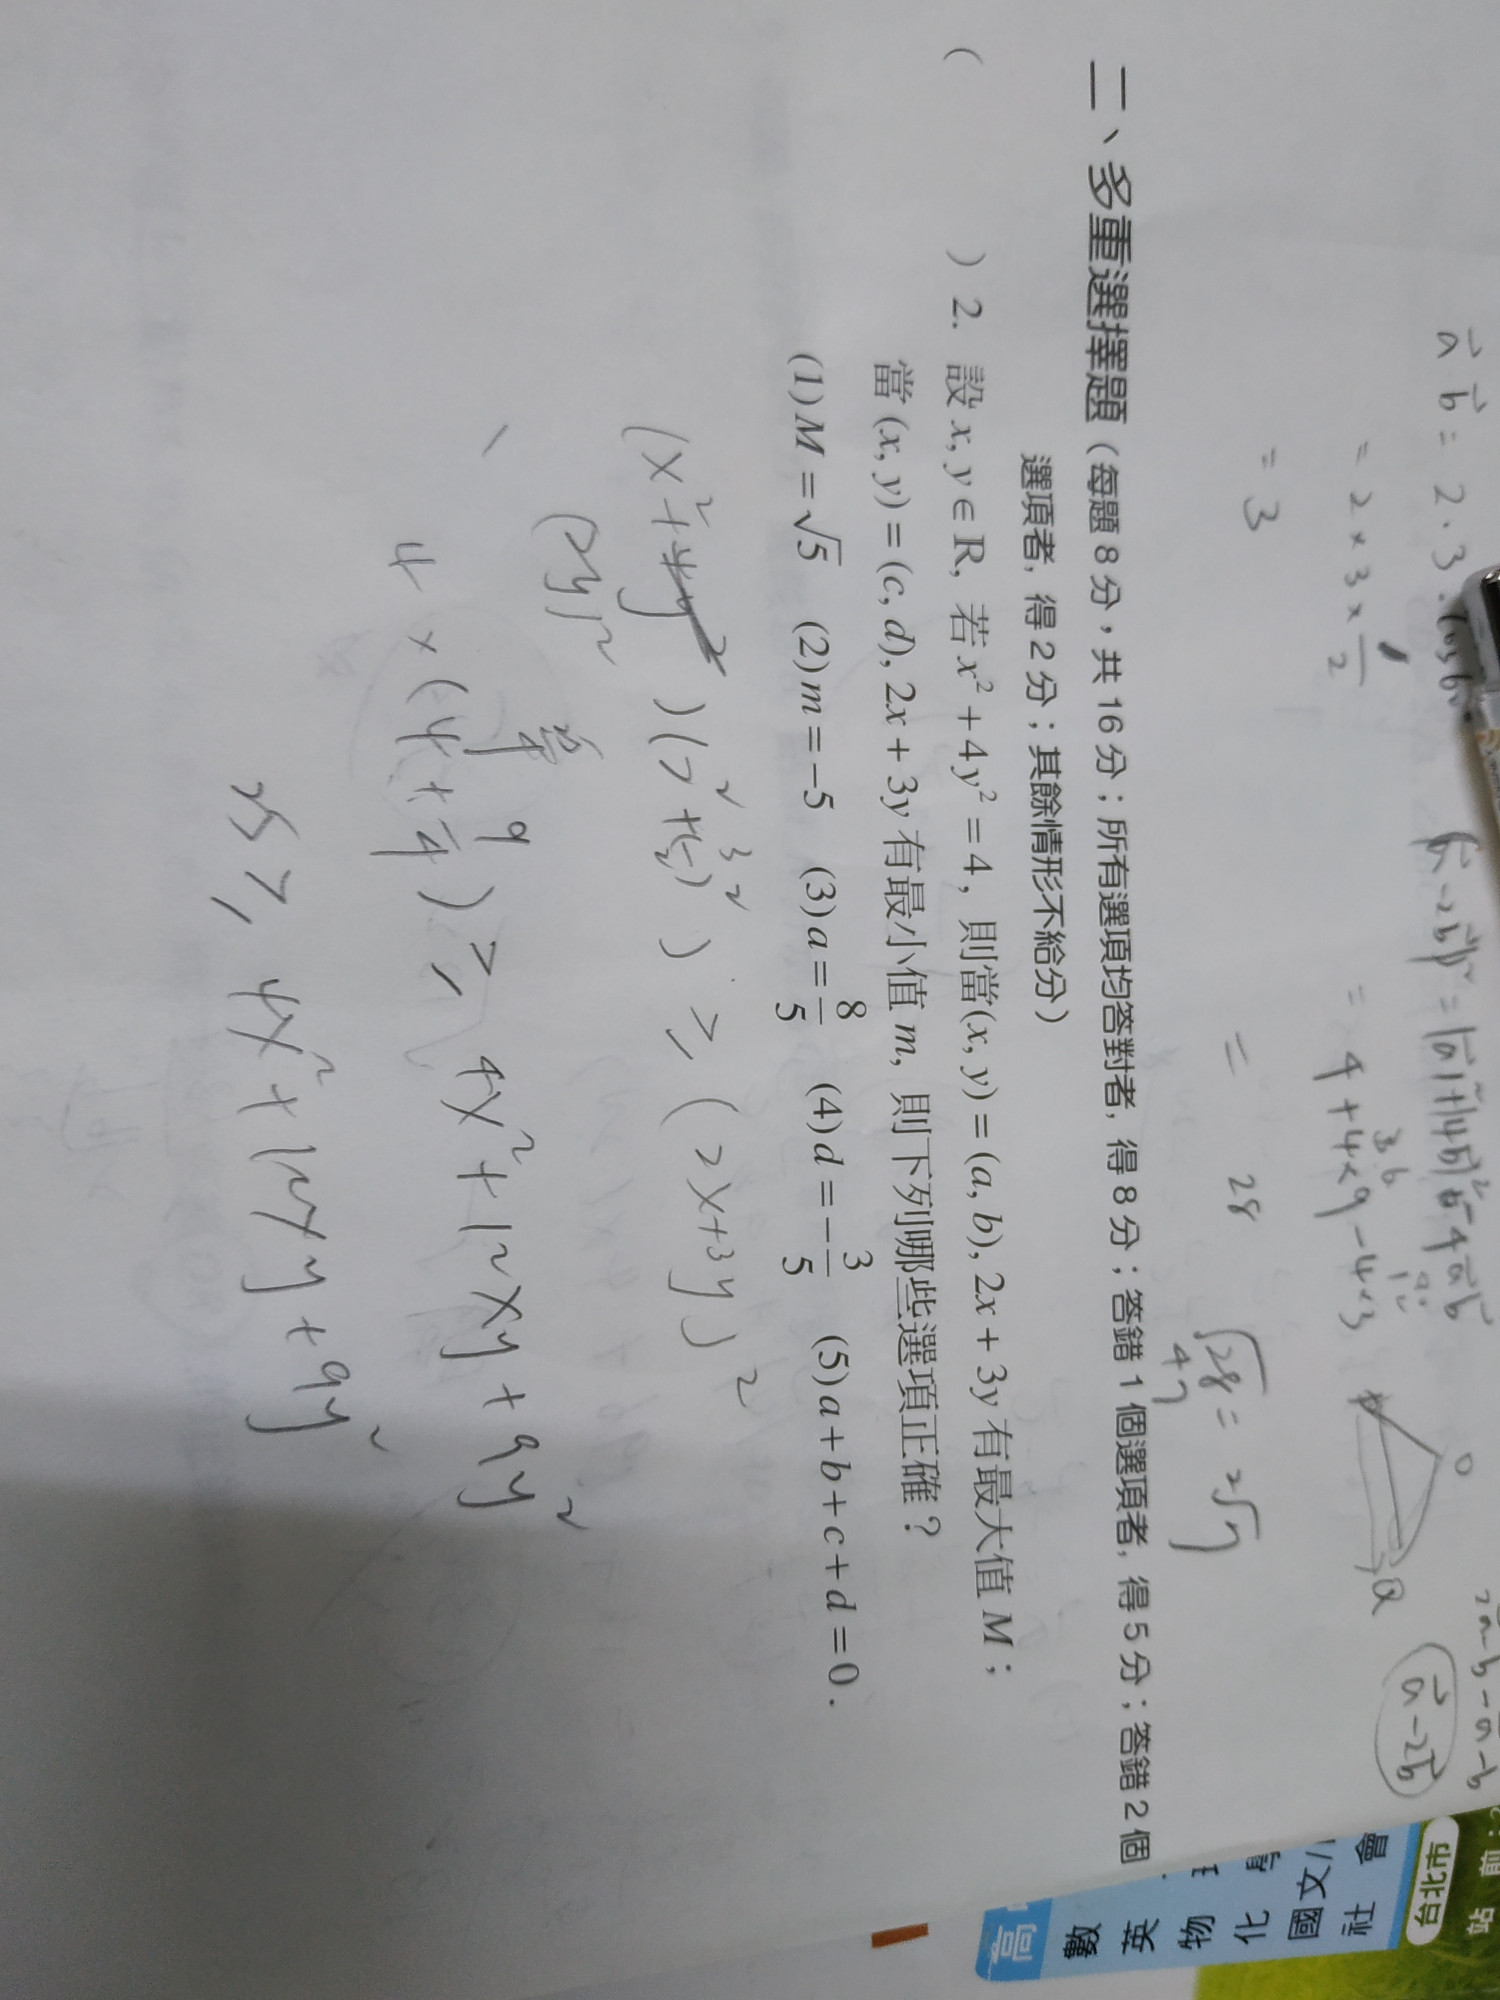 a⃗ b⃗ = 2 · 3 · cos6
= 2 × 3 × 1/2
= 3
= 4 + 4×9 - 4×3
36
12
= 28
√28 = 2√7
4 7
O
Q
a⃗-2b⃗
二、多重選擇題（每題 8 分，共 16 分；所有選項均答對者, 得 8 分；答錯 1 個選項者, 得 5 分；答錯 2 個
選項者, 得 2 分；其餘情形不給分）
( ) 2. 設 x, y ∈ R, 若 x² + 4y² = 4, 則當 (x, y) = (a, b), 2x + 3y 有最大值 M；
當 (x, y) = (c, d), 2x + 3y 有最小值 m, 則下列哪些選項正確？
(1) M = √5 (2) m = −5 (3) a = 8/5 (4) d = −3/5 (5) a + b + c + d = 0.
(x² + 4y²)(2² + (3/2)²) ≥ (2x+3y)²
(2y)²
25/4
4 × (4 + 9/4) ≥ 4x² + 12xy + 9y²
25 ≥ 4x² + 12xy + 9y²
台北市
站 前
社 會
國文/
化 學
物
英
數
高